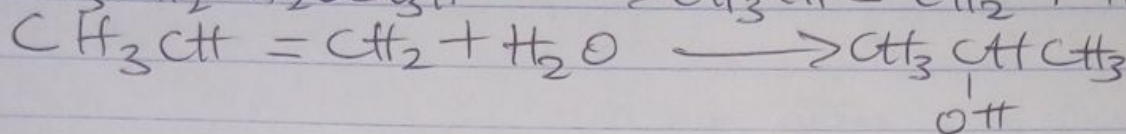 CH₃CH = CH₂ + H₂O ⟶ CH₃CHCH₃
|
OH